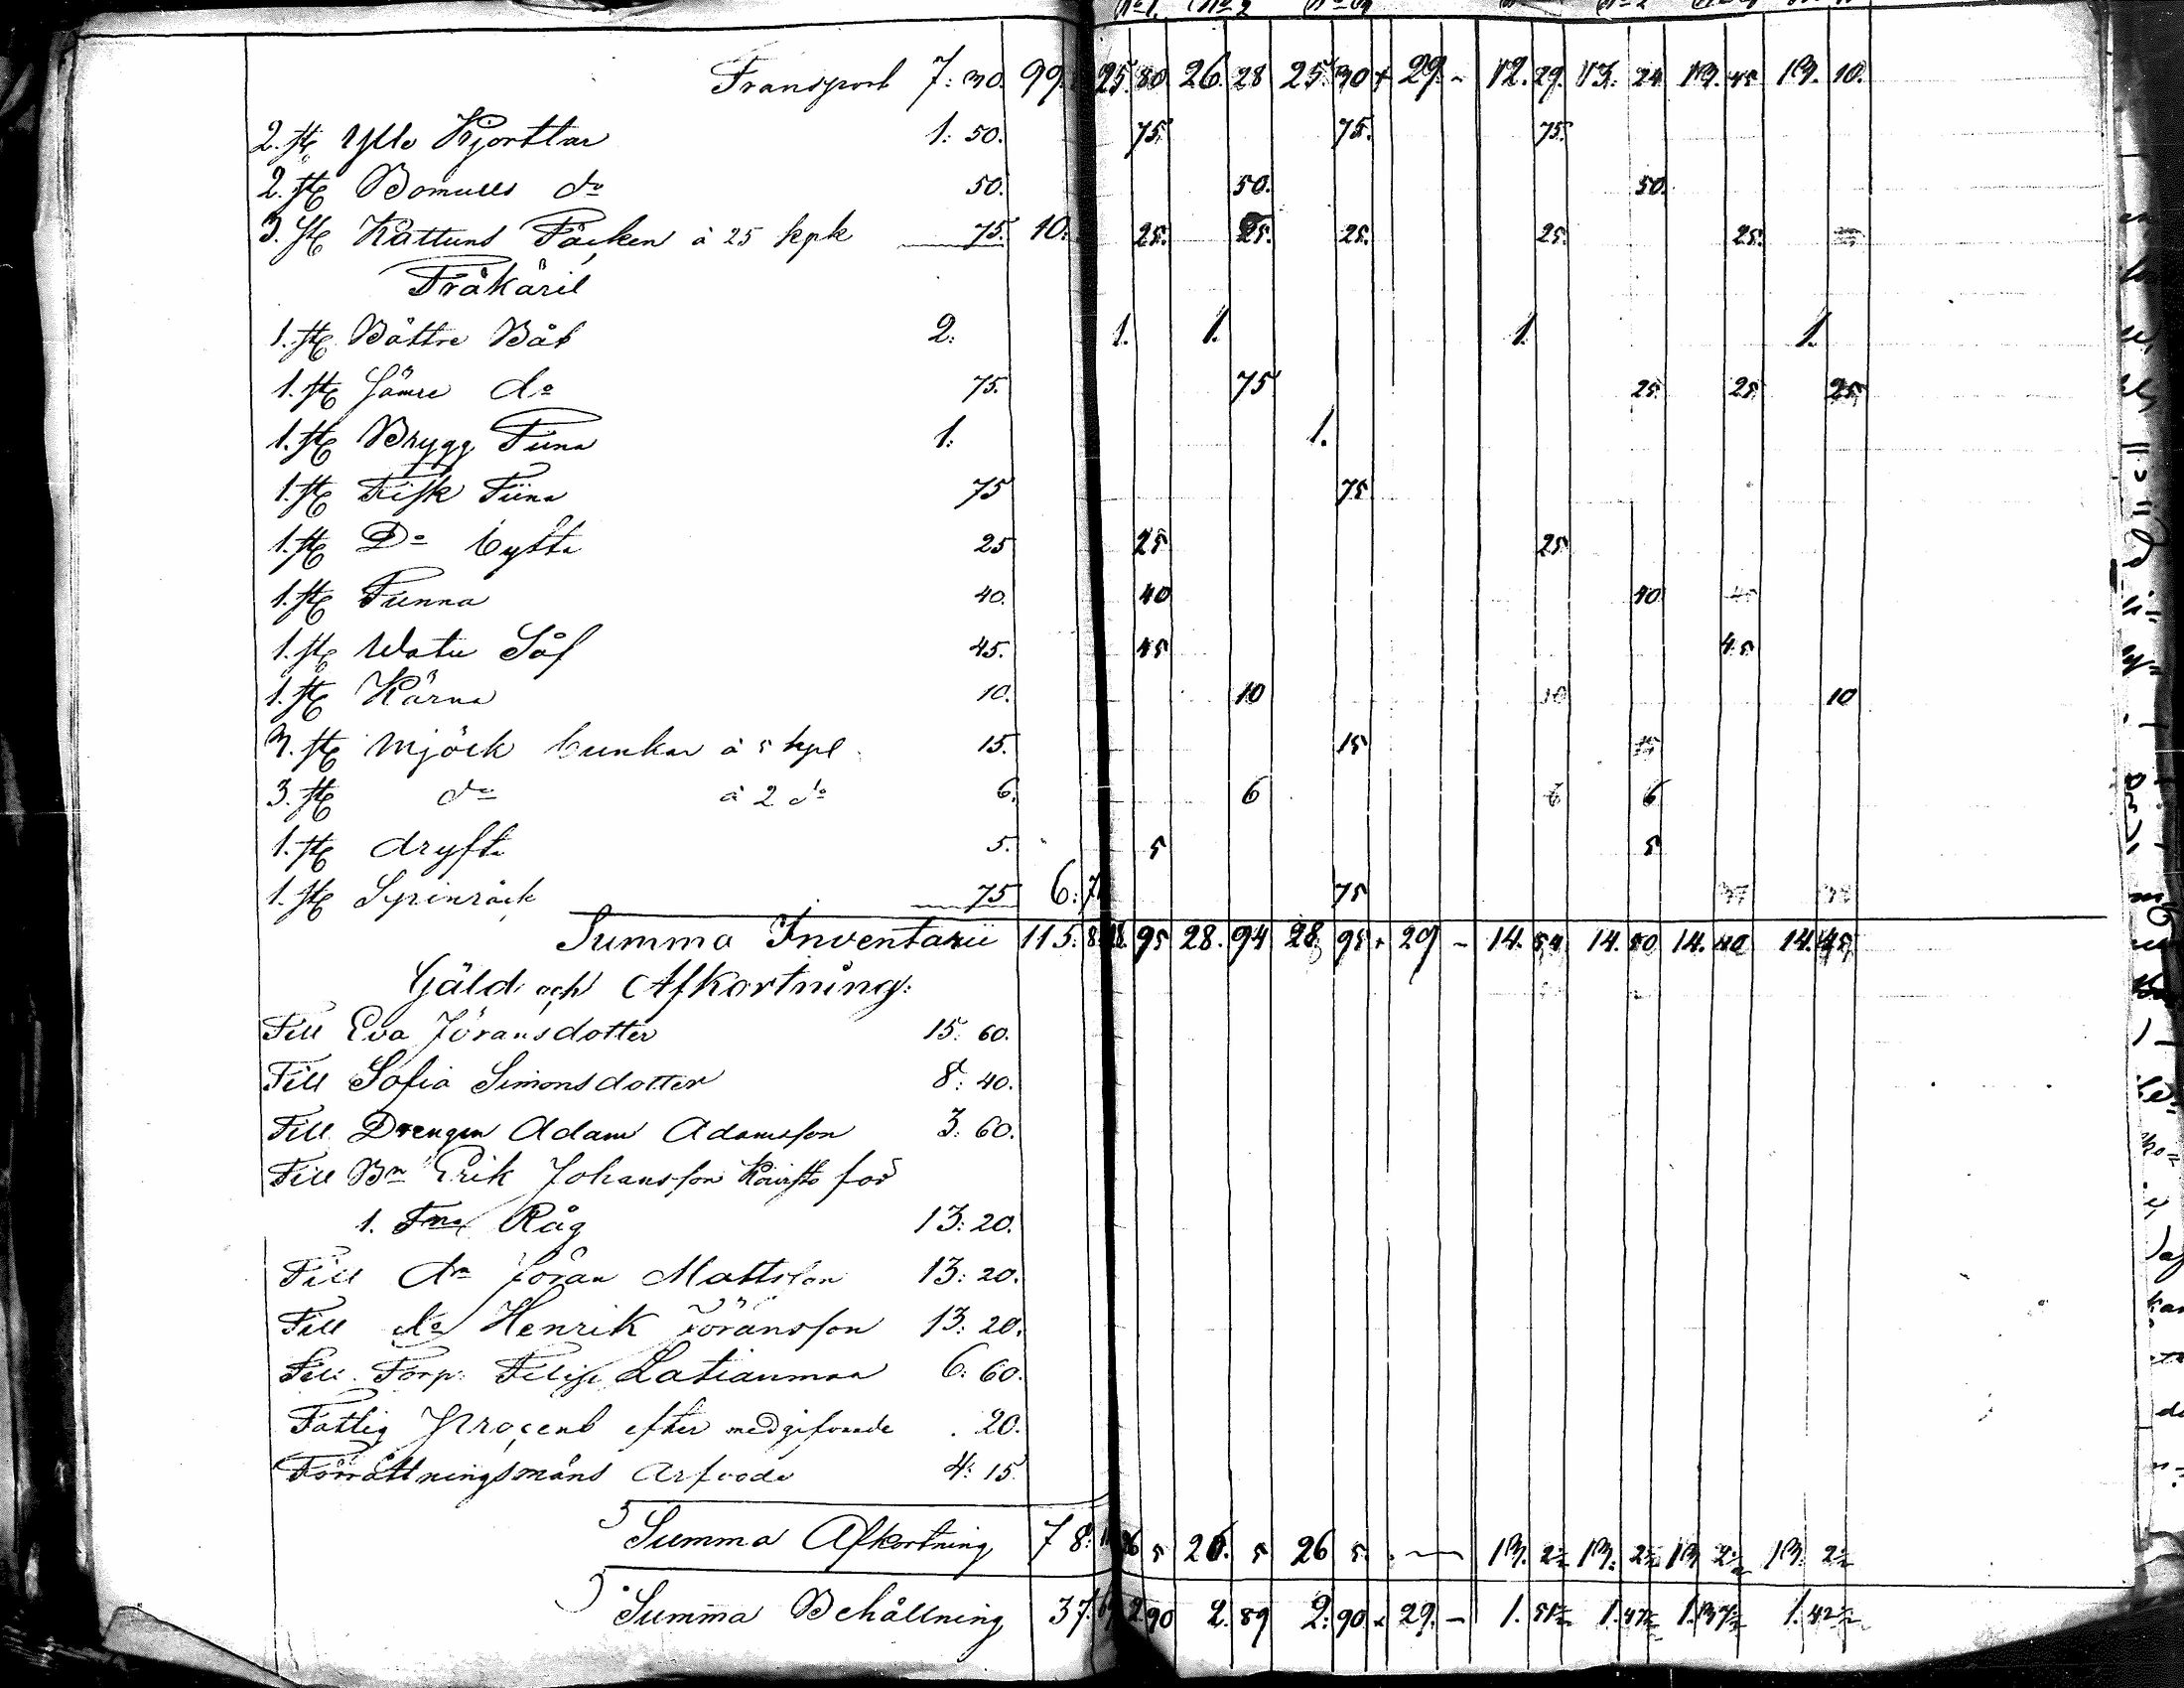 Transport 7: 30. 99. 25. 80. 26. 28 25. 30 + 29. - 12. 29. 13. 24. 13. 13. 10.
2. st. Ylle Kjorttlar 1: 50. 75. 75. 75.
2. st. Bomulls do 50. 50. 50.
3. st. Kattuns Fäcken à 25 kpk 75. 10: 25. 25. 25. 25. 25.
Träkäril
1. st. Bättre Båt 2: 1. 1. 1. 1.
1. st. Sämre do 75. 75 25. 25. 25.
1. st. Brygg Tiina 1: 1.
1. st. Fisk Tiina 75 75
1. st. Do bytta 25 25 25
1. st. Tunna 40. 40 40
1. st. Watu Såf 45. 45 45
1. st. Kärna 10. 10 10 10
3. st. Mjölk bunkar à 5 kpl. 15. 15 15
3. st. do à 2 do 6. 6 6 6
1. st. dryfta 5. 5 5
1. st. Spinråck 75 6: 75
Summa Inventarii 115: 28. 95 28. 94 28. 95 + 29 - 14. 54 14. 50 14. 40 14. 45
Gäld och Afkortning:
Till Eva Jöransdotter 15: 60.
Till Sofia Simonsdotter 8: 40.
Till Drengen Adam Adamsson 3: 60.
Till Bn Erik Johansson för
1. Tna Råg 13: 20.
Till dn Jöran Mattsson 13: 20.
Till do Henrik Jöransson 13: 20.
Till Torp. Filip Latianmaa 6: 60.
Fattig Procent efter medgifvande . 20.
Förrättningsmäns Arfvode 4: 15.
Summa Afkortning 78: 26 5 26. 5 26 5. - 13. 2½ 13. 2½ 13 2½ 13. 2½
Summa Behållning 37. 2 90 2. 89 2. 90 + 29. - 1. 51½ 1. 47½ 1. 37½ 1. 42½